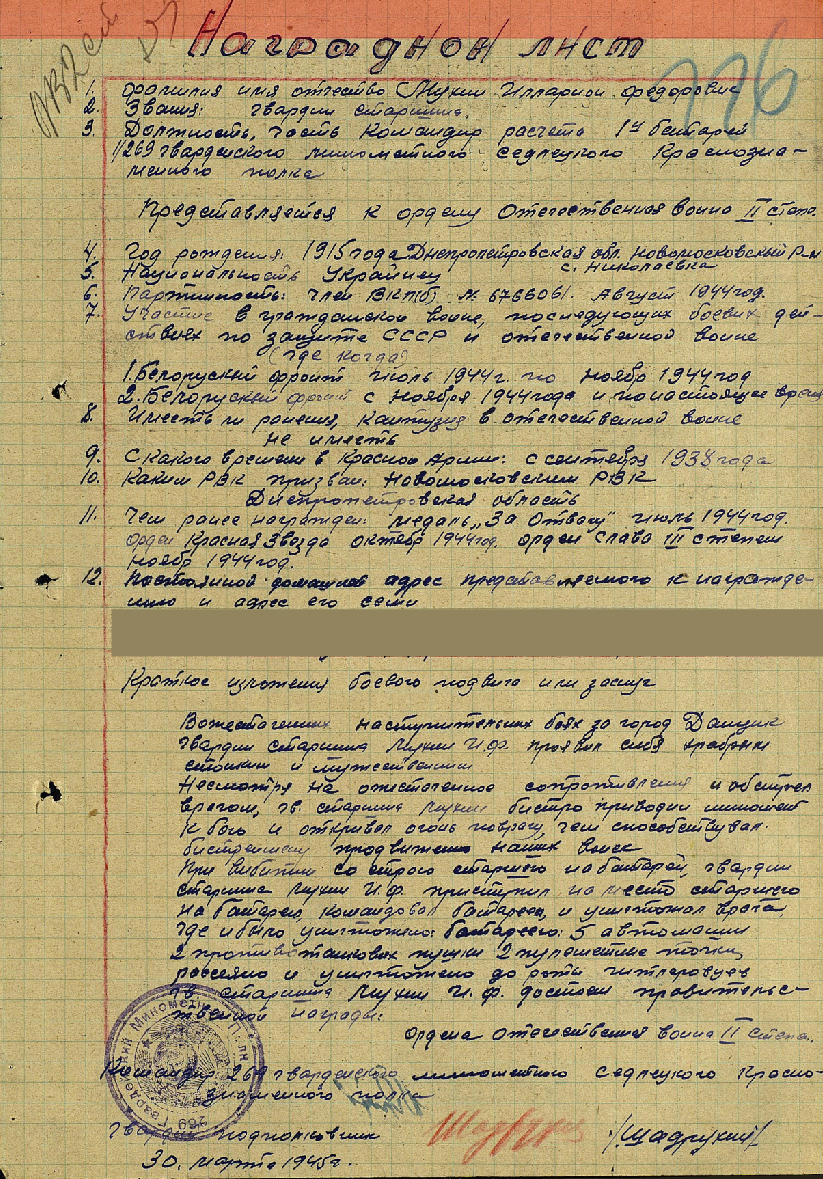 Наградной лист
226
1. Фамилия имя отчество Мукии Илларион Федорович
2. Звания: гвардии старшина.
3. Должность, часть Командир расчета 1й батареи
269 гвардейского минометного Седлецкого Краснозна-
менного полка
Представляется к ордену Отечественная война II степ.
4. Год рождения: 1915 года Днепропетровская обл. Новомосковский Р-н
с. Николаевка
5. Национальность Украинец
6. Партийность: член ВКП(б) № 6766061. Август 1944 год.
7. Участие в гражданской воине, последующих боевых дей-
ствиях по защите СССР и отечественной воине
(где когда)
1. Белорускый фронт июль 1944 г. по ноябр 1944 год
2. Белорускый фронт с ноября 1944 года и по настоящее время
8. Имееть ли ранения, контузия в отечественной воине
не имееть
9. С какого времени в Красной Армии: с сентября 1938 года
10. Каким РВК призван: Новомосковским РВК
Днепропетровская область
11. Чем ранее награжден: медаль „За Отвагу" июль 1944 год.
орден Красная Звезда октябр 1944 год. орден Слава III степени
ноябр 1944 год.
12. Постоянной домашнее адрес представляемого к награжде-
нию и адрес его семи
Краткое изложения боевого подвига или заслуг
В ожесточенних наступительних боях за город Данциг
гвардии старшина И.Ф. проявил себя храбрим
стоиким и мужественним
Несмотря на ожесточенное сопротивления и обстрел
врагом, гв. старшина бистро приводил миномет
к бою и открывал огонь по врагу, чем способствувал
бистреишему продвижению наших воиск
При вибитии со строю старшего на батареи, гвардии
старшина И.Ф. приступил на место старшего
на батареи, командовал батареей, и уништожал врага
где и было уништожено батареею: 5 автомашин
2 противотанкових пушки 2 пулеметние точки,
рассеяно и уништожено до роти гитлеровцев
гв. старшина И.Ф. достоен правительс-
твенной награды:
ордена Отечественная воина II степ.
Командир 269 гвардейского минометного Седлецкого Красно-
знаменного полка
Гвардии подполковник /Шадрукии/
30. марта 1945 г.